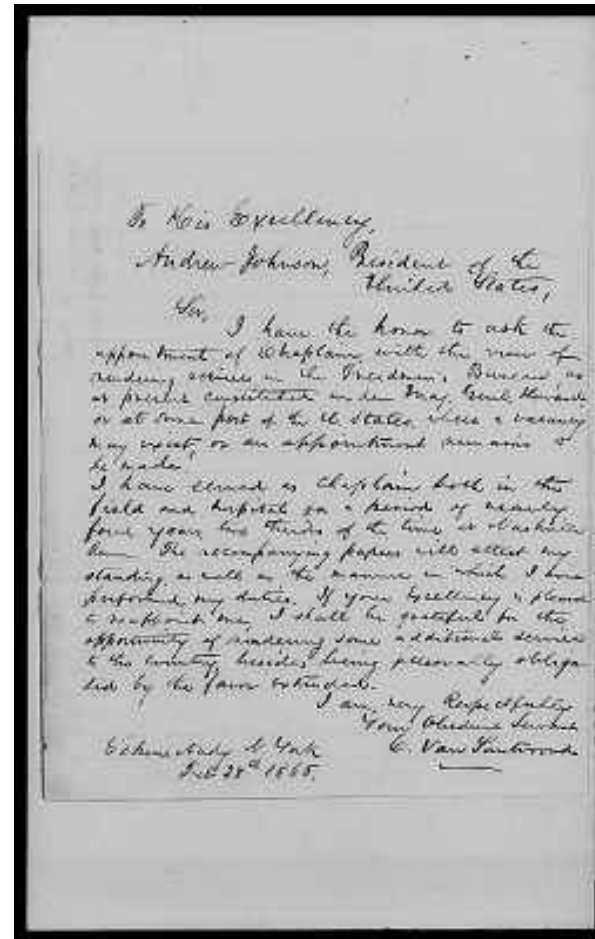 To His Excellency,
Andrew Johnson, President of the
United States,
Sir,
I have the honor to ask the
appointment of Chaplain, with the view of
rendering services in the Freedmen's Bureau, as
at present constituted under Maj. Genl. Howard
or at some post of the U. States, where a vacancy
may exist, or an appointment remains to
be made.
I have served as Chaplain both in the
field and hospital for a period of nearly
four years, two thirds of the time at Nashville
Tenn. The accompanying papers will attest my
standing as well as the manner in which I have
performed my duties. If your Excellency is pleased
to reappoint me, I shall be grateful for the
opportunity of rendering some additional service
to the country, besides being personally obliga
ted by the favor extended.
I am, very Respectfully
Your Obedient Servant
C. Van Santvoord
N. York
28th 1865,